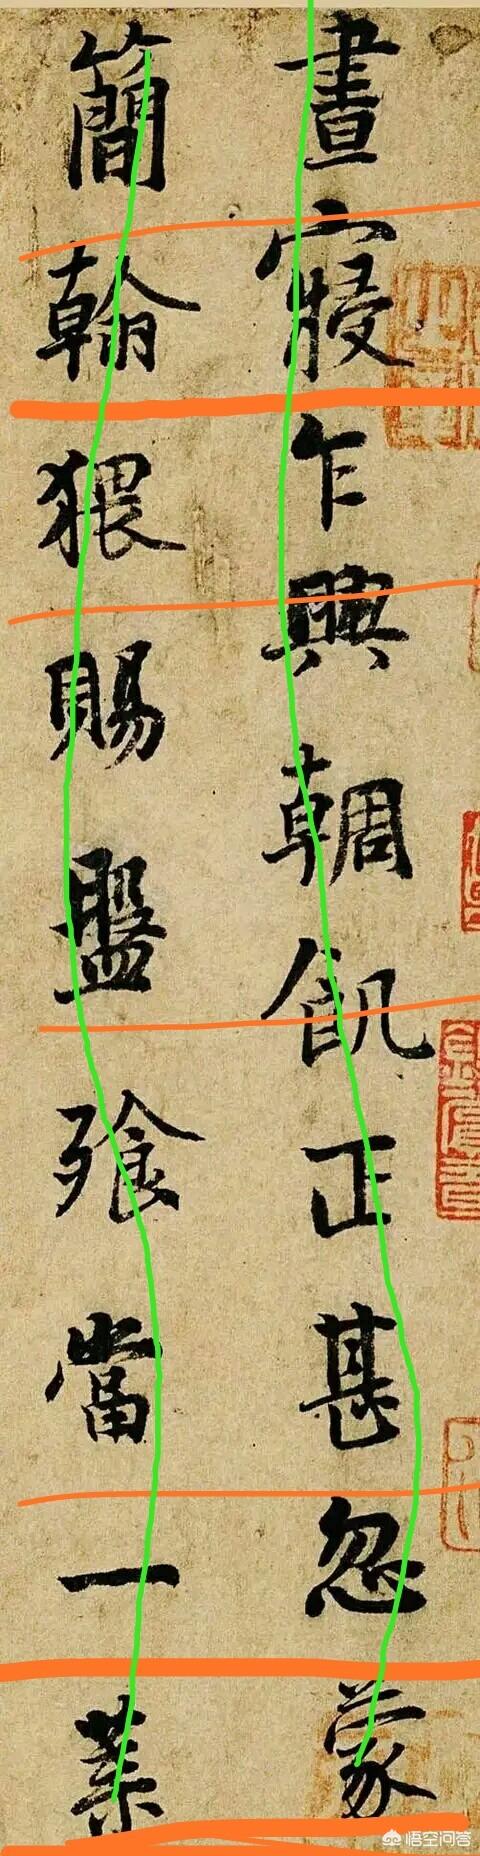 晝寢乍興輖飢正甚忽蒙
簡翰猥賜盤飧當一葉
悟空问答